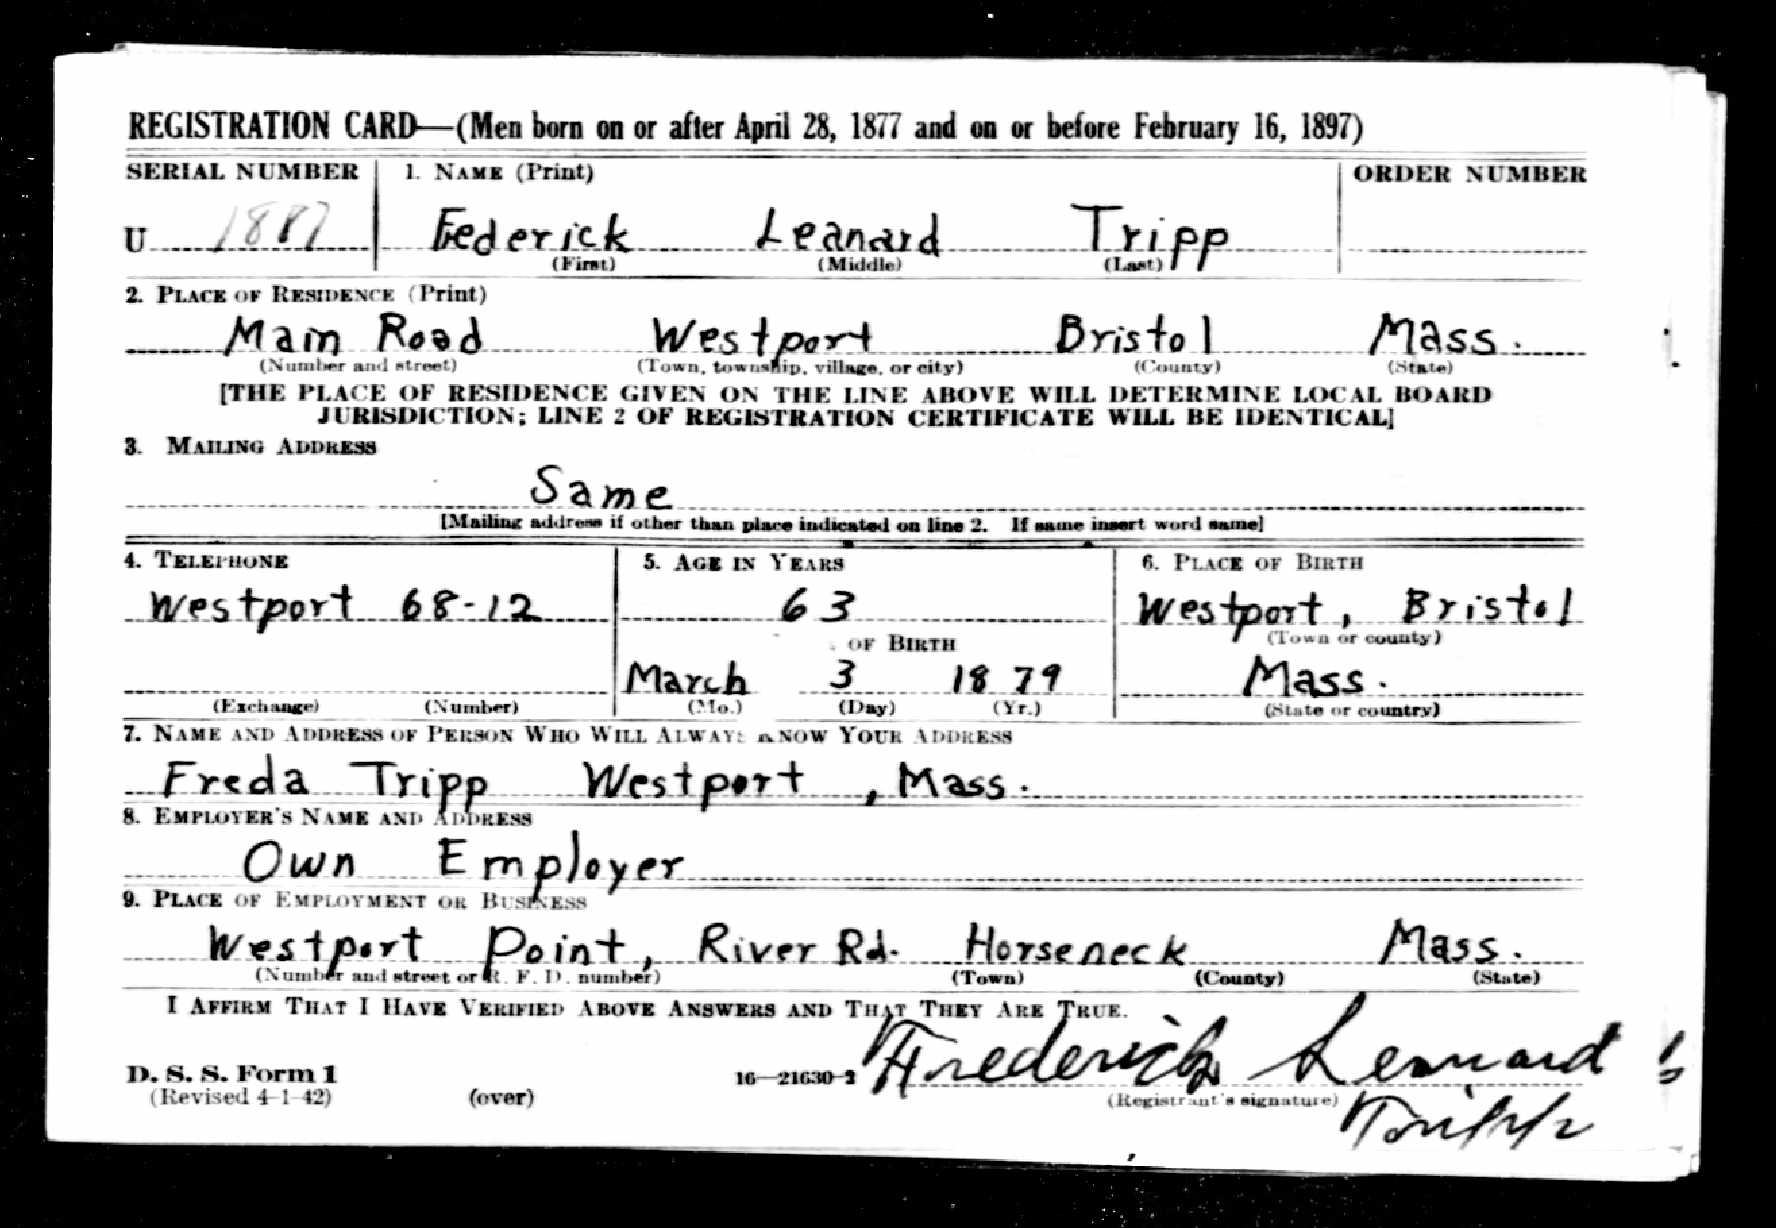 REGISTRATION CARD—(Men born on or after April 28, 1877 and on or before February 16, 1897)
SERIAL NUMBER 1. NAME (Print) ORDER NUMBER
U 1887 Federick Leanard Tripp
(First) (Middle) (Last)
2. PLACE OF RESIDENCE (Print)
Main Road Westport Bristol Mass.
(Number and street) (Town, township, village, or city) (County) (State)
[THE PLACE OF RESIDENCE GIVEN ON THE LINE ABOVE WILL DETERMINE LOCAL BOARD
JURISDICTION; LINE 2 OF REGISTRATION CERTIFICATE WILL BE IDENTICAL]
3. MAILING ADDRESS
Same
[Mailing address if other than place indicated on line 2. If same insert word same]
4. TELEPHONE 5. AGE IN YEARS 6. PLACE OF BIRTH
Westport 68-12 63 Westport, Bristol
OF BIRTH (Town or county)
March 3 1879 Mass.
(Exchange) (Number) (Mo.) (Day) (Yr.) (State or country)
7. NAME AND ADDRESS OF PERSON WHO WILL ALWAYS KNOW YOUR ADDRESS
Freda Tripp Westport, Mass.
8. EMPLOYER'S NAME AND ADDRESS
Own Employer
9. PLACE OF EMPLOYMENT OR BUSINESS
Westport Point, River Rd. Horseneck Mass.
(Number and street or R. F. D. number) (Town) (County) (State)
I AFFIRM THAT I HAVE VERIFIED ABOVE ANSWERS AND THAT THEY ARE TRUE.
D. S. S. Form 1 16—21630-2 Frederick Lennard
(Revised 4-1-42) (over) (Registrant's signature)
Tripp